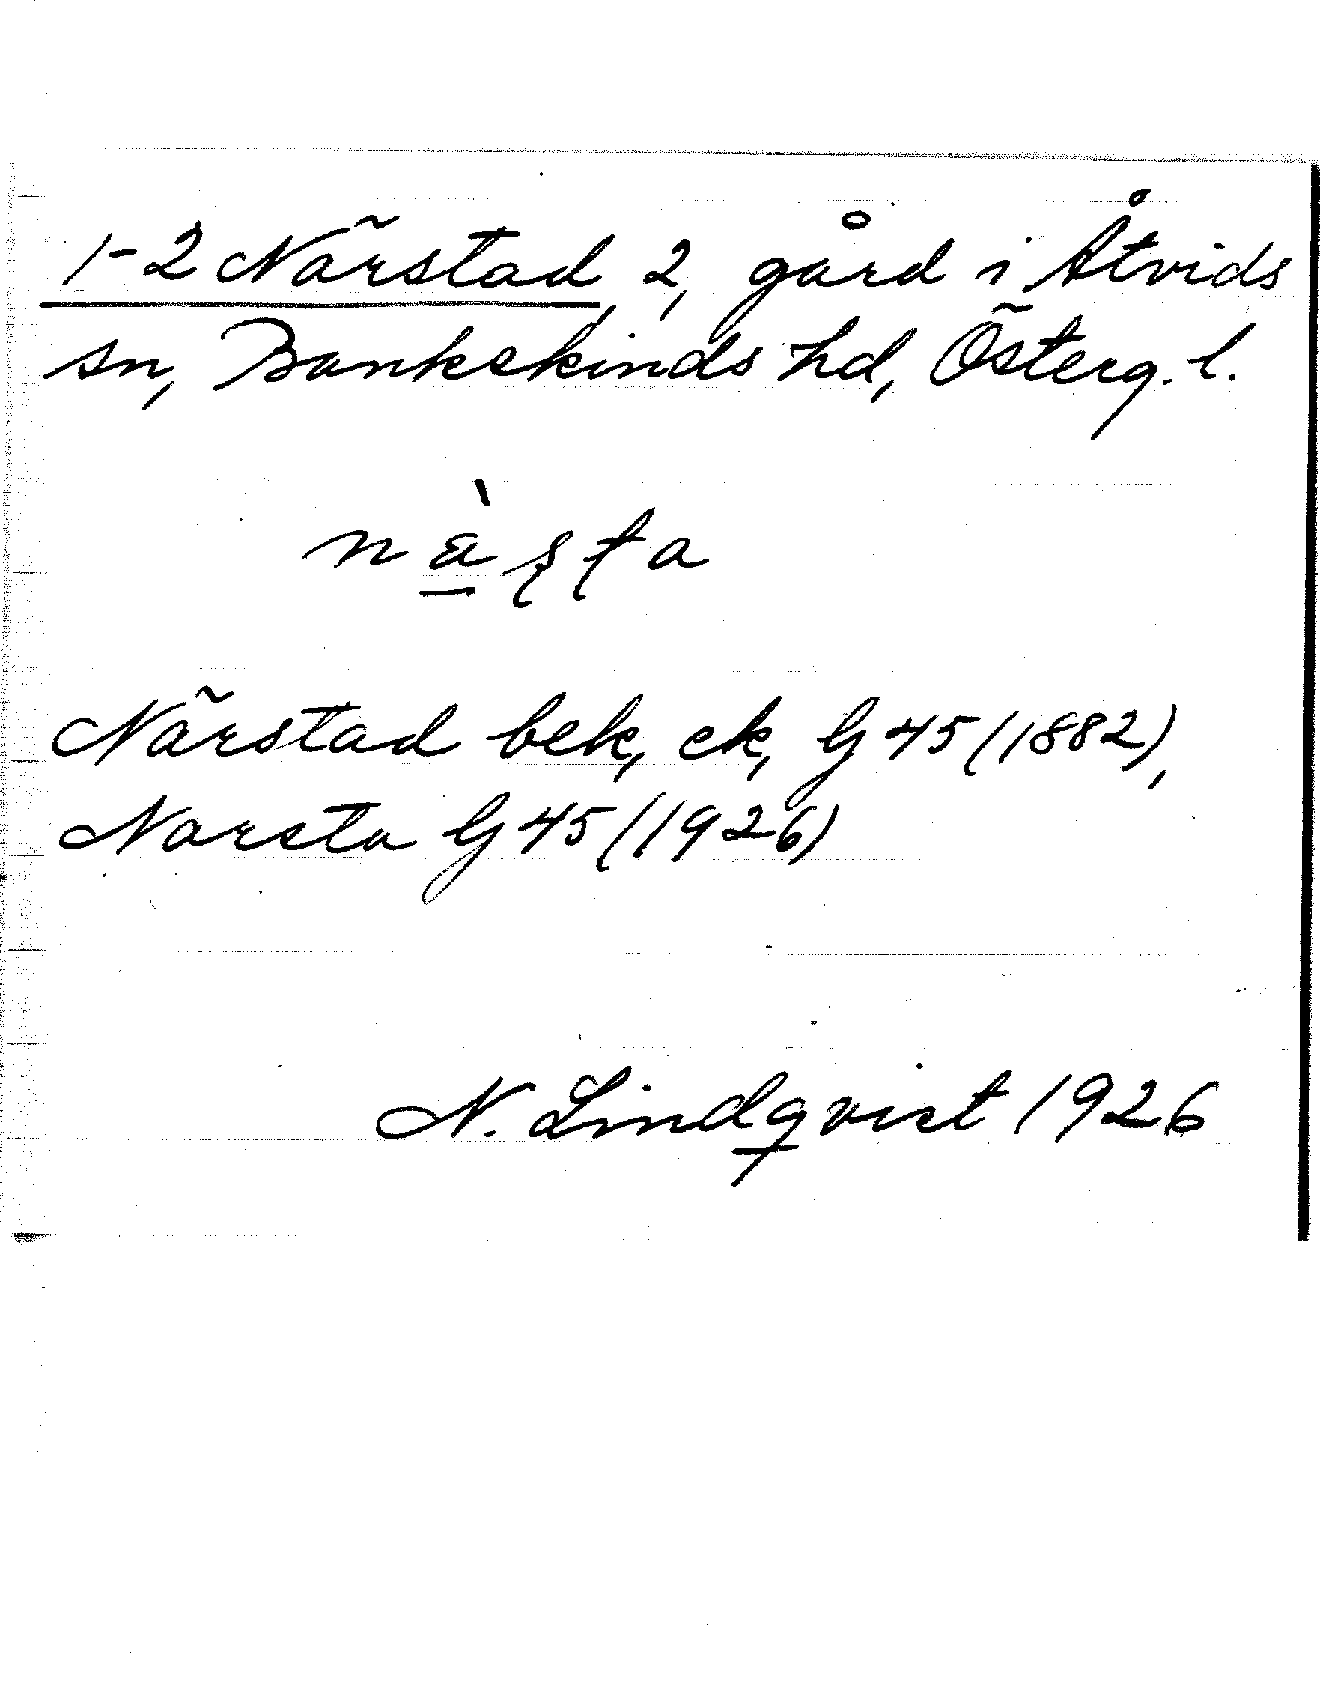 1-2 Närstad, 2, gård i Åtvids
sn, Bankekinds hd, Österg. l.
nà̱ʂʈa
Närstad bek, ek, G 45 (1882),
Narsta G 45 (1926)
N. Lindqvist 1926